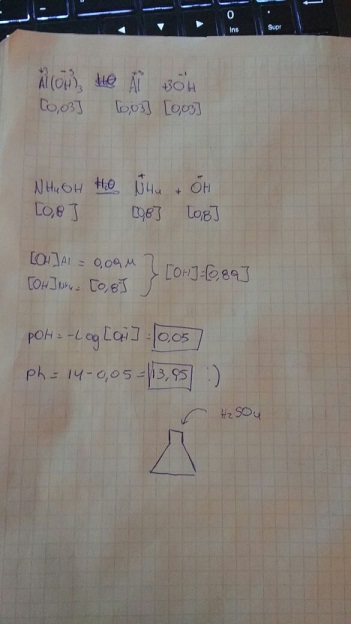 0
Ins
Supr
Al(OH)₃ H₂O Al + 3OH
[0,03] [0,03] [0,03]
NH₄OH H₂O NH₄ + OH
[0,8] [0,8] [0,8]
[OH]Al = 0,09M
[OH]NH₄ = [0,8] } [OH]=[0,89]
pOH = -Log[OH] = 0,05
Ph = 14-0,05 = 13,95 :)
H₂SO₄